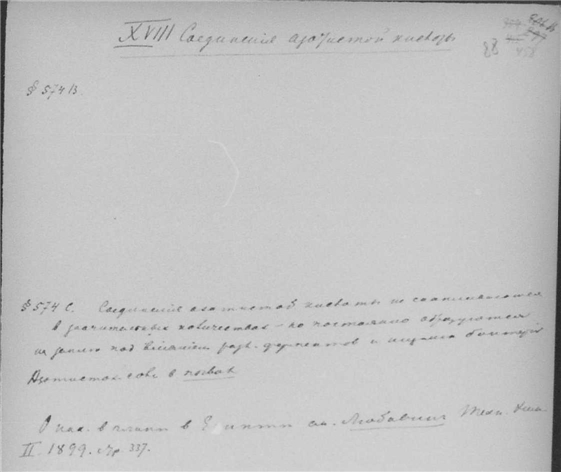 XVIII Соединения азотистой кислоты
88
§ 574 B.
§ 574 C. Соединения азотистой кислоты не скапливаются
в значительных количествах – но постоянно образуются
на землю под влиянием разл. ферментов и
Азотистой в почвах
О в глине в Египте см. Любавин Техн. Хим.
II. 1899. стр. 337.